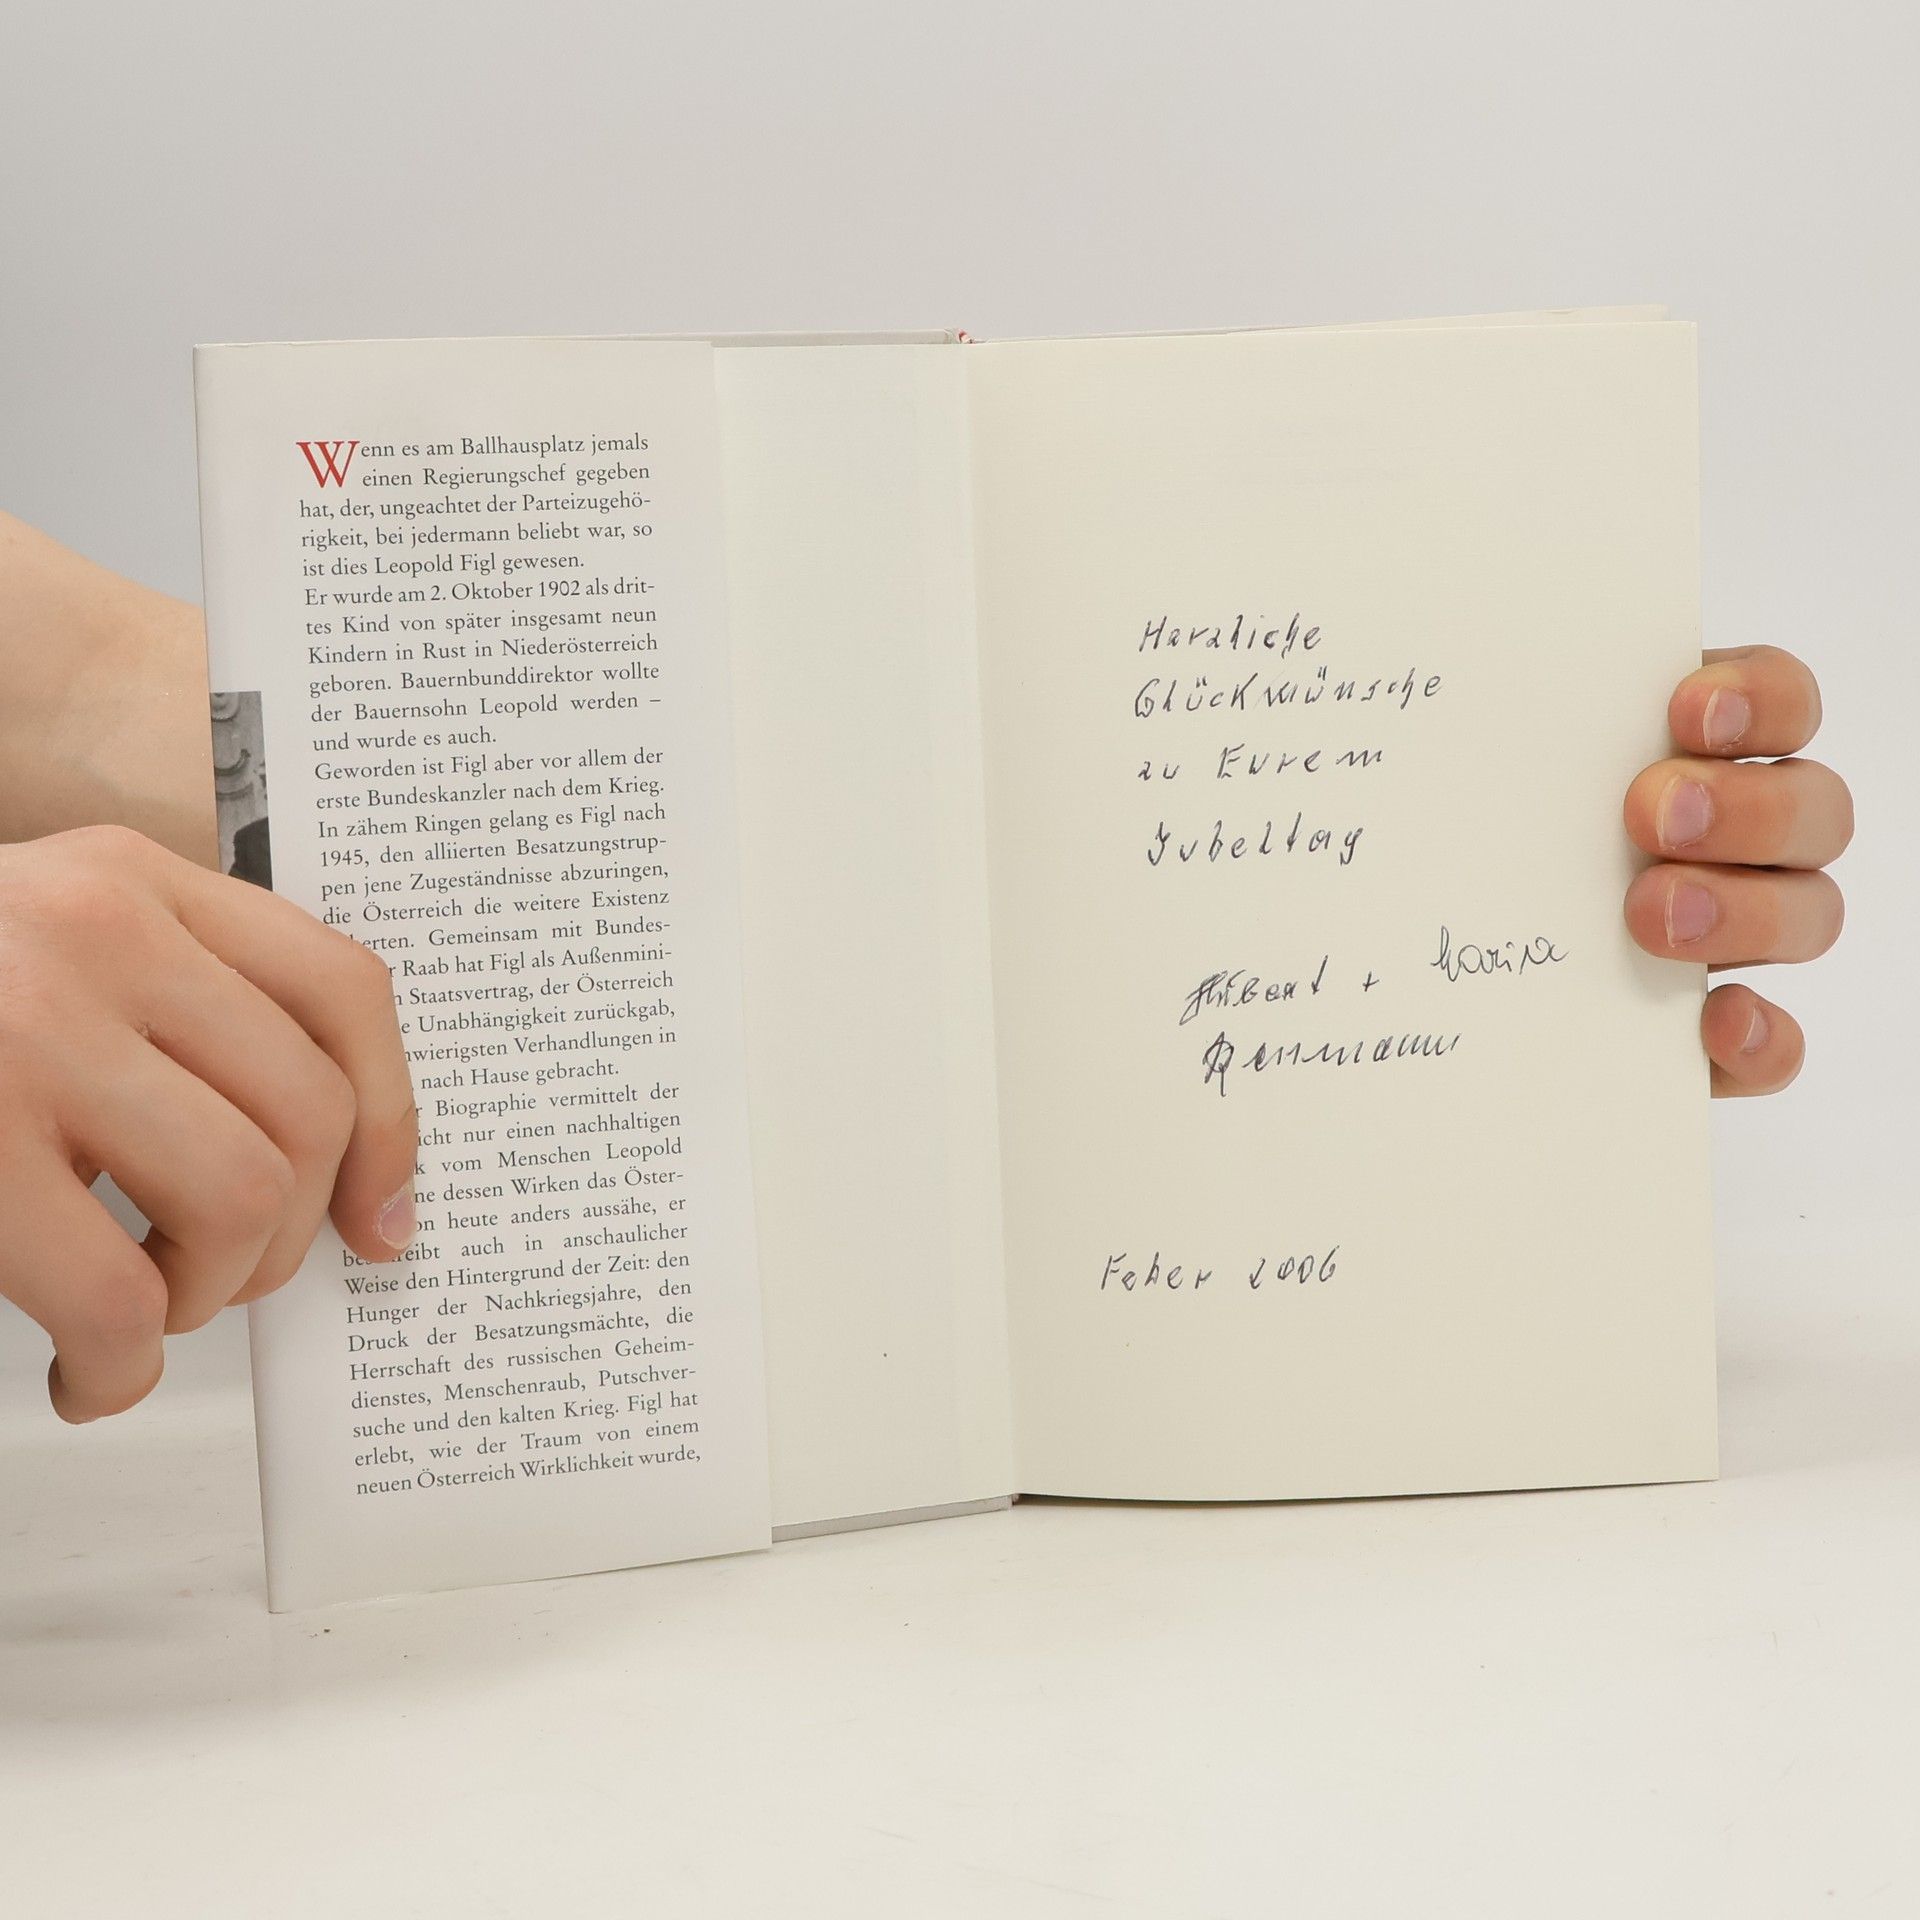 Wenn es am Ballhausplatz jemals
einen Regierungschef gegeben
hat, der, ungeachtet der Parteizugehö-
rigkeit, bei jedermann beliebt war, so
ist dies Leopold Figl gewesen.
Er wurde am 2. Oktober 1902 als drit-
tes Kind von später insgesamt neun
Kindern in Rust in Niederösterreich
geboren. Bauernbunddirektor wollte
der Bauernsohn Leopold werden –
und wurde es auch.
Geworden ist Figl aber vor allem der
erste Bundeskanzler nach dem Krieg.
In zähem Ringen gelang es Figl nach
1945, den alliierten Besatzungstrup-
pen jene Zugeständnisse abzuringen,
die Österreich die weitere Existenz
Gemeinsam mit Bundes-
Raab hat Figl als Außenmini-
Staatsvertrag, der Österreich
Unabhängigkeit zurückgab,
Verhandlungen in
nach Hause gebracht.
Biographie vermittelt der
nur einen nachhaltigen
vom Menschen Leopold
dessen Wirken das Öster-
heute anders aussähe, er
auch in anschaulicher
Weise den Hintergrund der Zeit: den
Hunger der Nachkriegsjahre, den
Druck der Besatzungsmächte, die
Herrschaft des russischen Geheim-
dienstes, Menschenraub, Putschver-
suche und den kalten Krieg. Figl hat
erlebt, wie der Traum von einem
neuen Österreich Wirklichkeit wurde,
Herzliche
Glückwünsche
zu Eurem
Jubeltag
+
Feber 2006